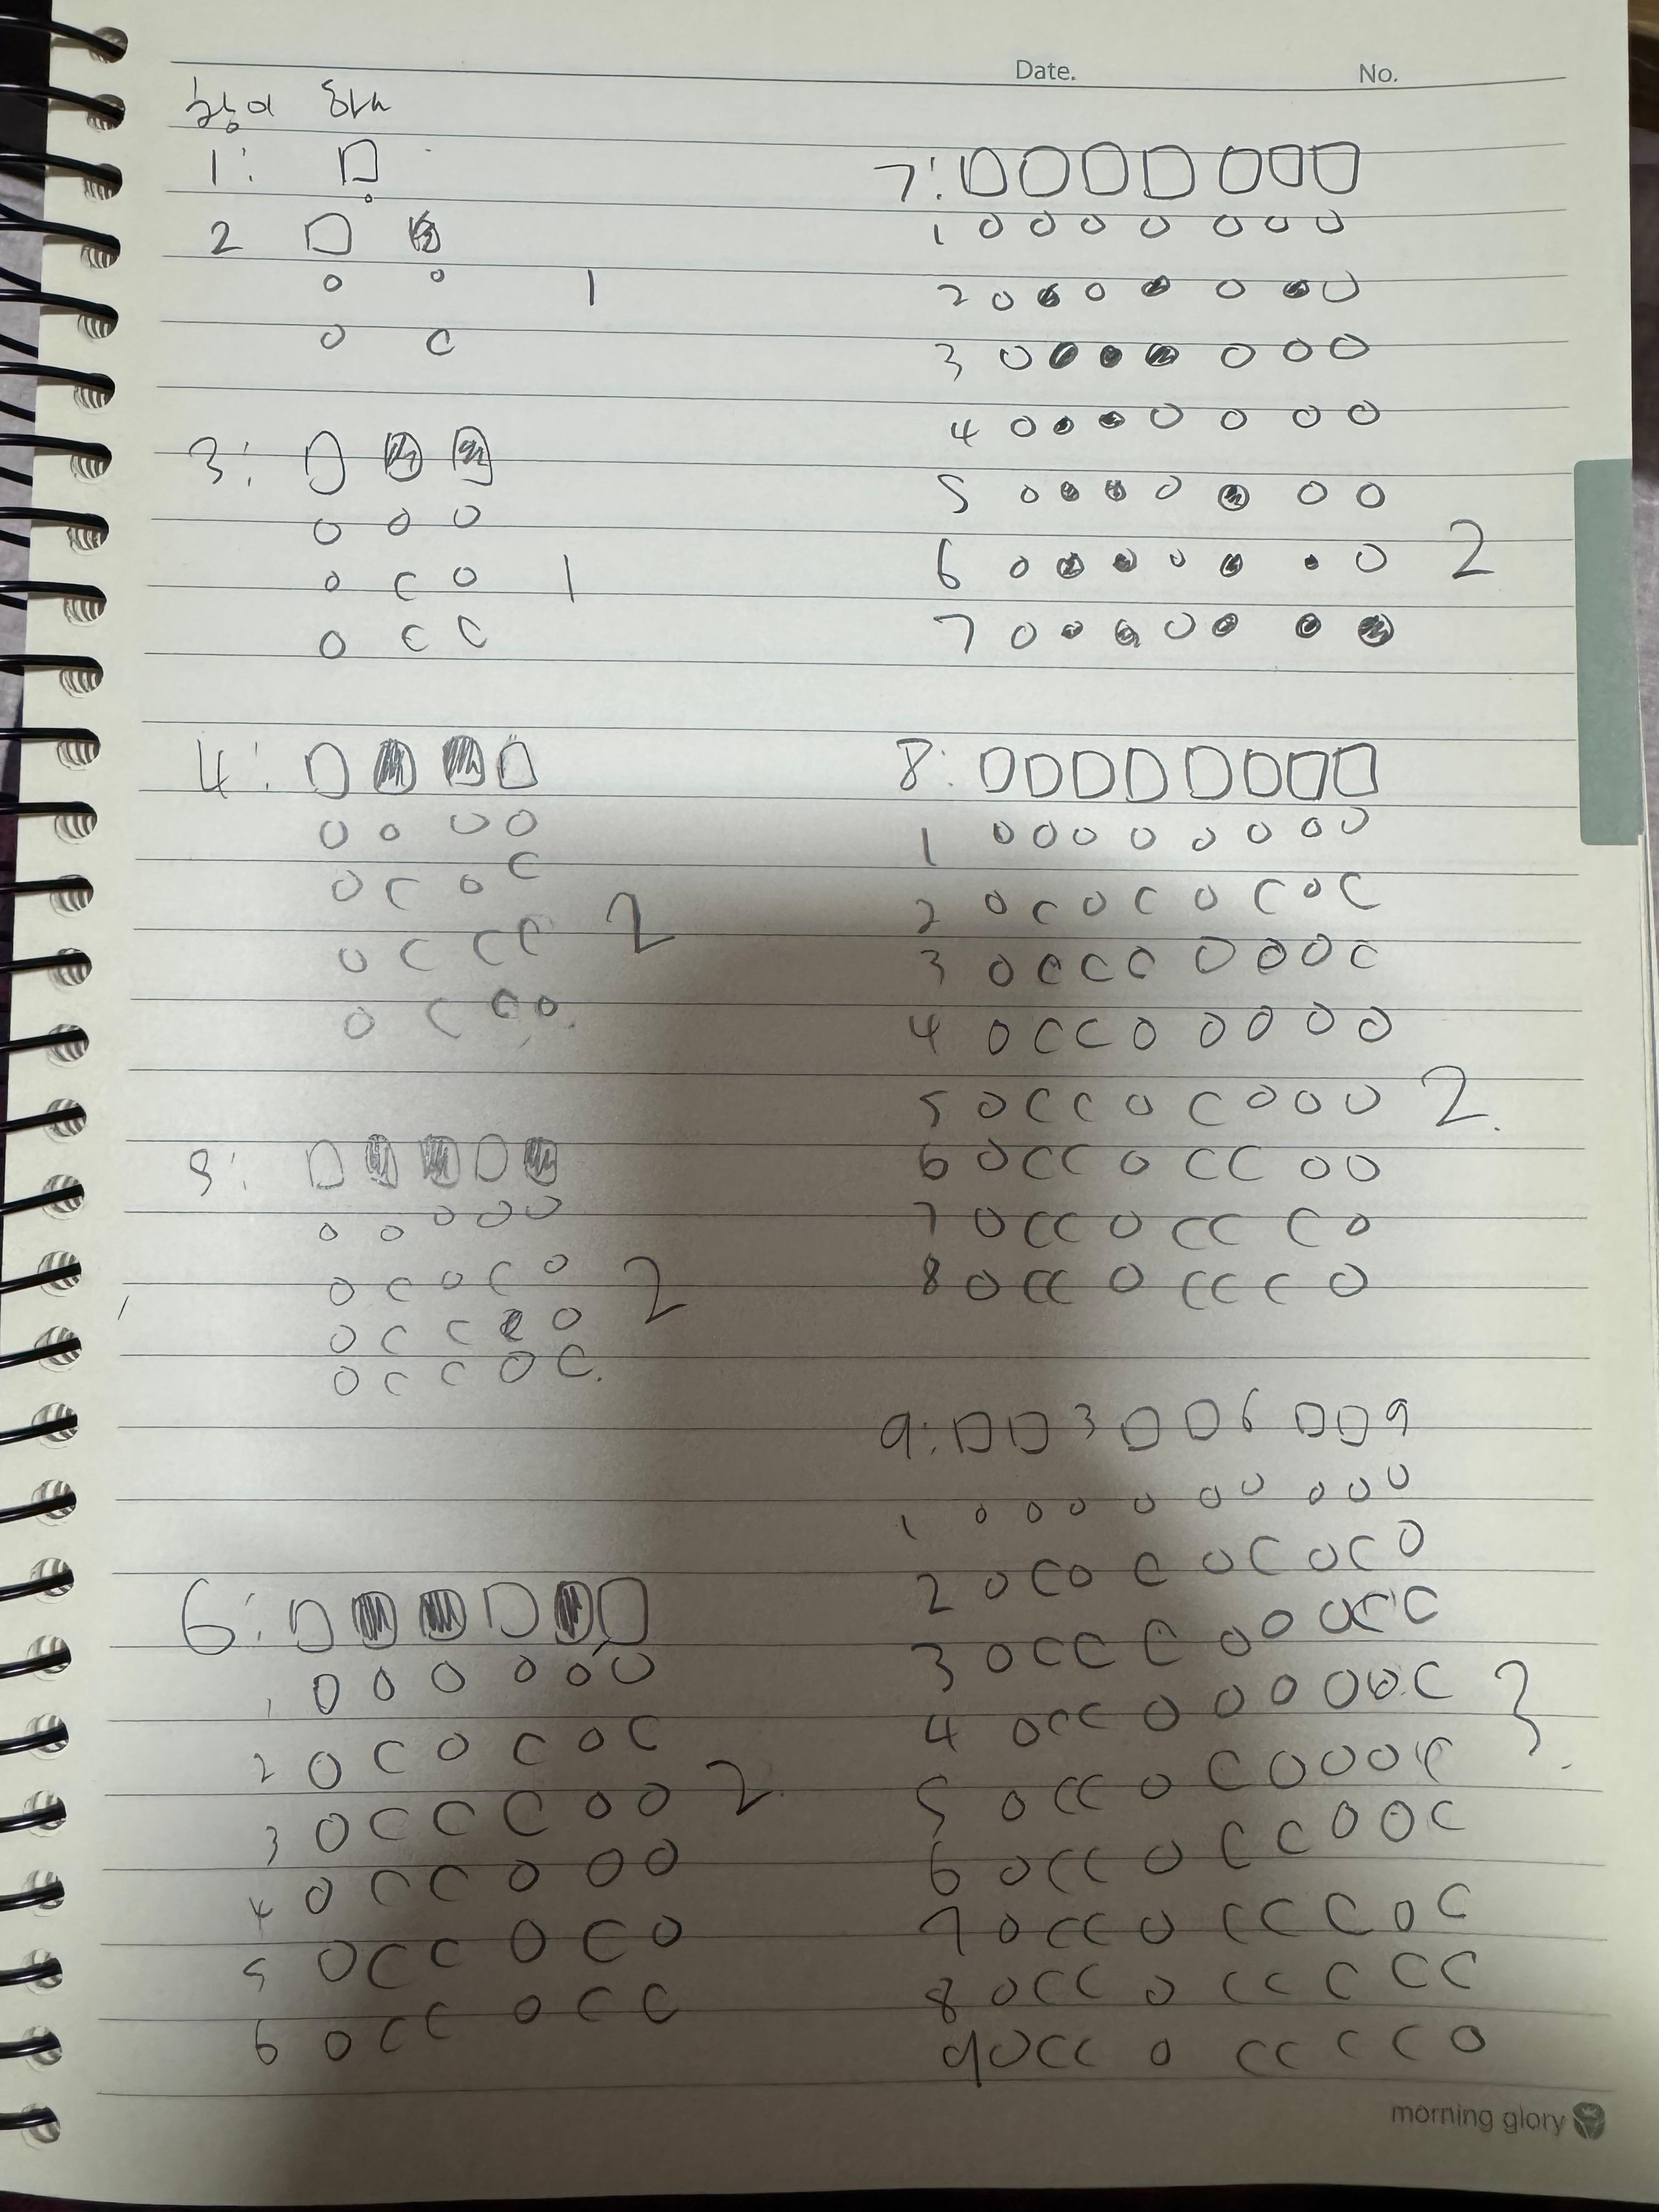 Date. No.
1: □
2 □ ■
O O 1
O C
3: □ ■ ■
O O O
O C O 1
O C C
4: □ ■ ■ □
O O O O
O C O C
O C C C 2
O C C O
5: □ ■ ■ □ ■
O O O O O
O C O C O 2
O C C C O
O C C O C
6: □ ■ ■ □ ■ □
1 O O O O O O
2 O C O C O C
3 O C C C O O 2
4 O C C O O O
5 O C C O C O
6 O C C O C C
7: □ □ □ □ □ □ □
1 O O O O O O O
2 O ● O ● O ● O
3 O ● ● ● O O O
4 O ● ● O O O O
5 O ● ● O ● O O
6 O ● ● O ● ● O 2
7 O ● ● O ● ● ●
8: □ □ □ □ □ □ □ □
1 O O O O O O O O
2 O C O C O C O C
3 O C C C O O O C
4 O C C O O O O O
5 O C C O C O O O 2
6 O C C O C C O O
7 O C C O C C C O
8 O C C O C C C O
9: □ □ 3 □ □ 6 □ □ 9
1 O O O O O O O O O
2 O C O C O C O C O
3 O C C C O O O C C
4 O C C O O O O O C 3
5 O C C O C O O O C
6 O C C O C C O O C
7 O C C O C C C O C
8 O C C O C C C C C
9 O C C O C C C C O
morning glory